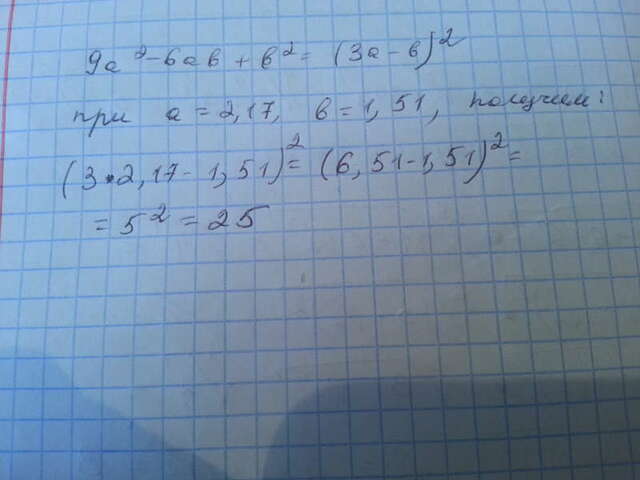 9a² - 6ab + b² = (3a - b)²
при a = 2,17, b = 1,51, получим:
(3•2,17 - 1,51)² = (6,51 - 1,51)² =
= 5² = 25